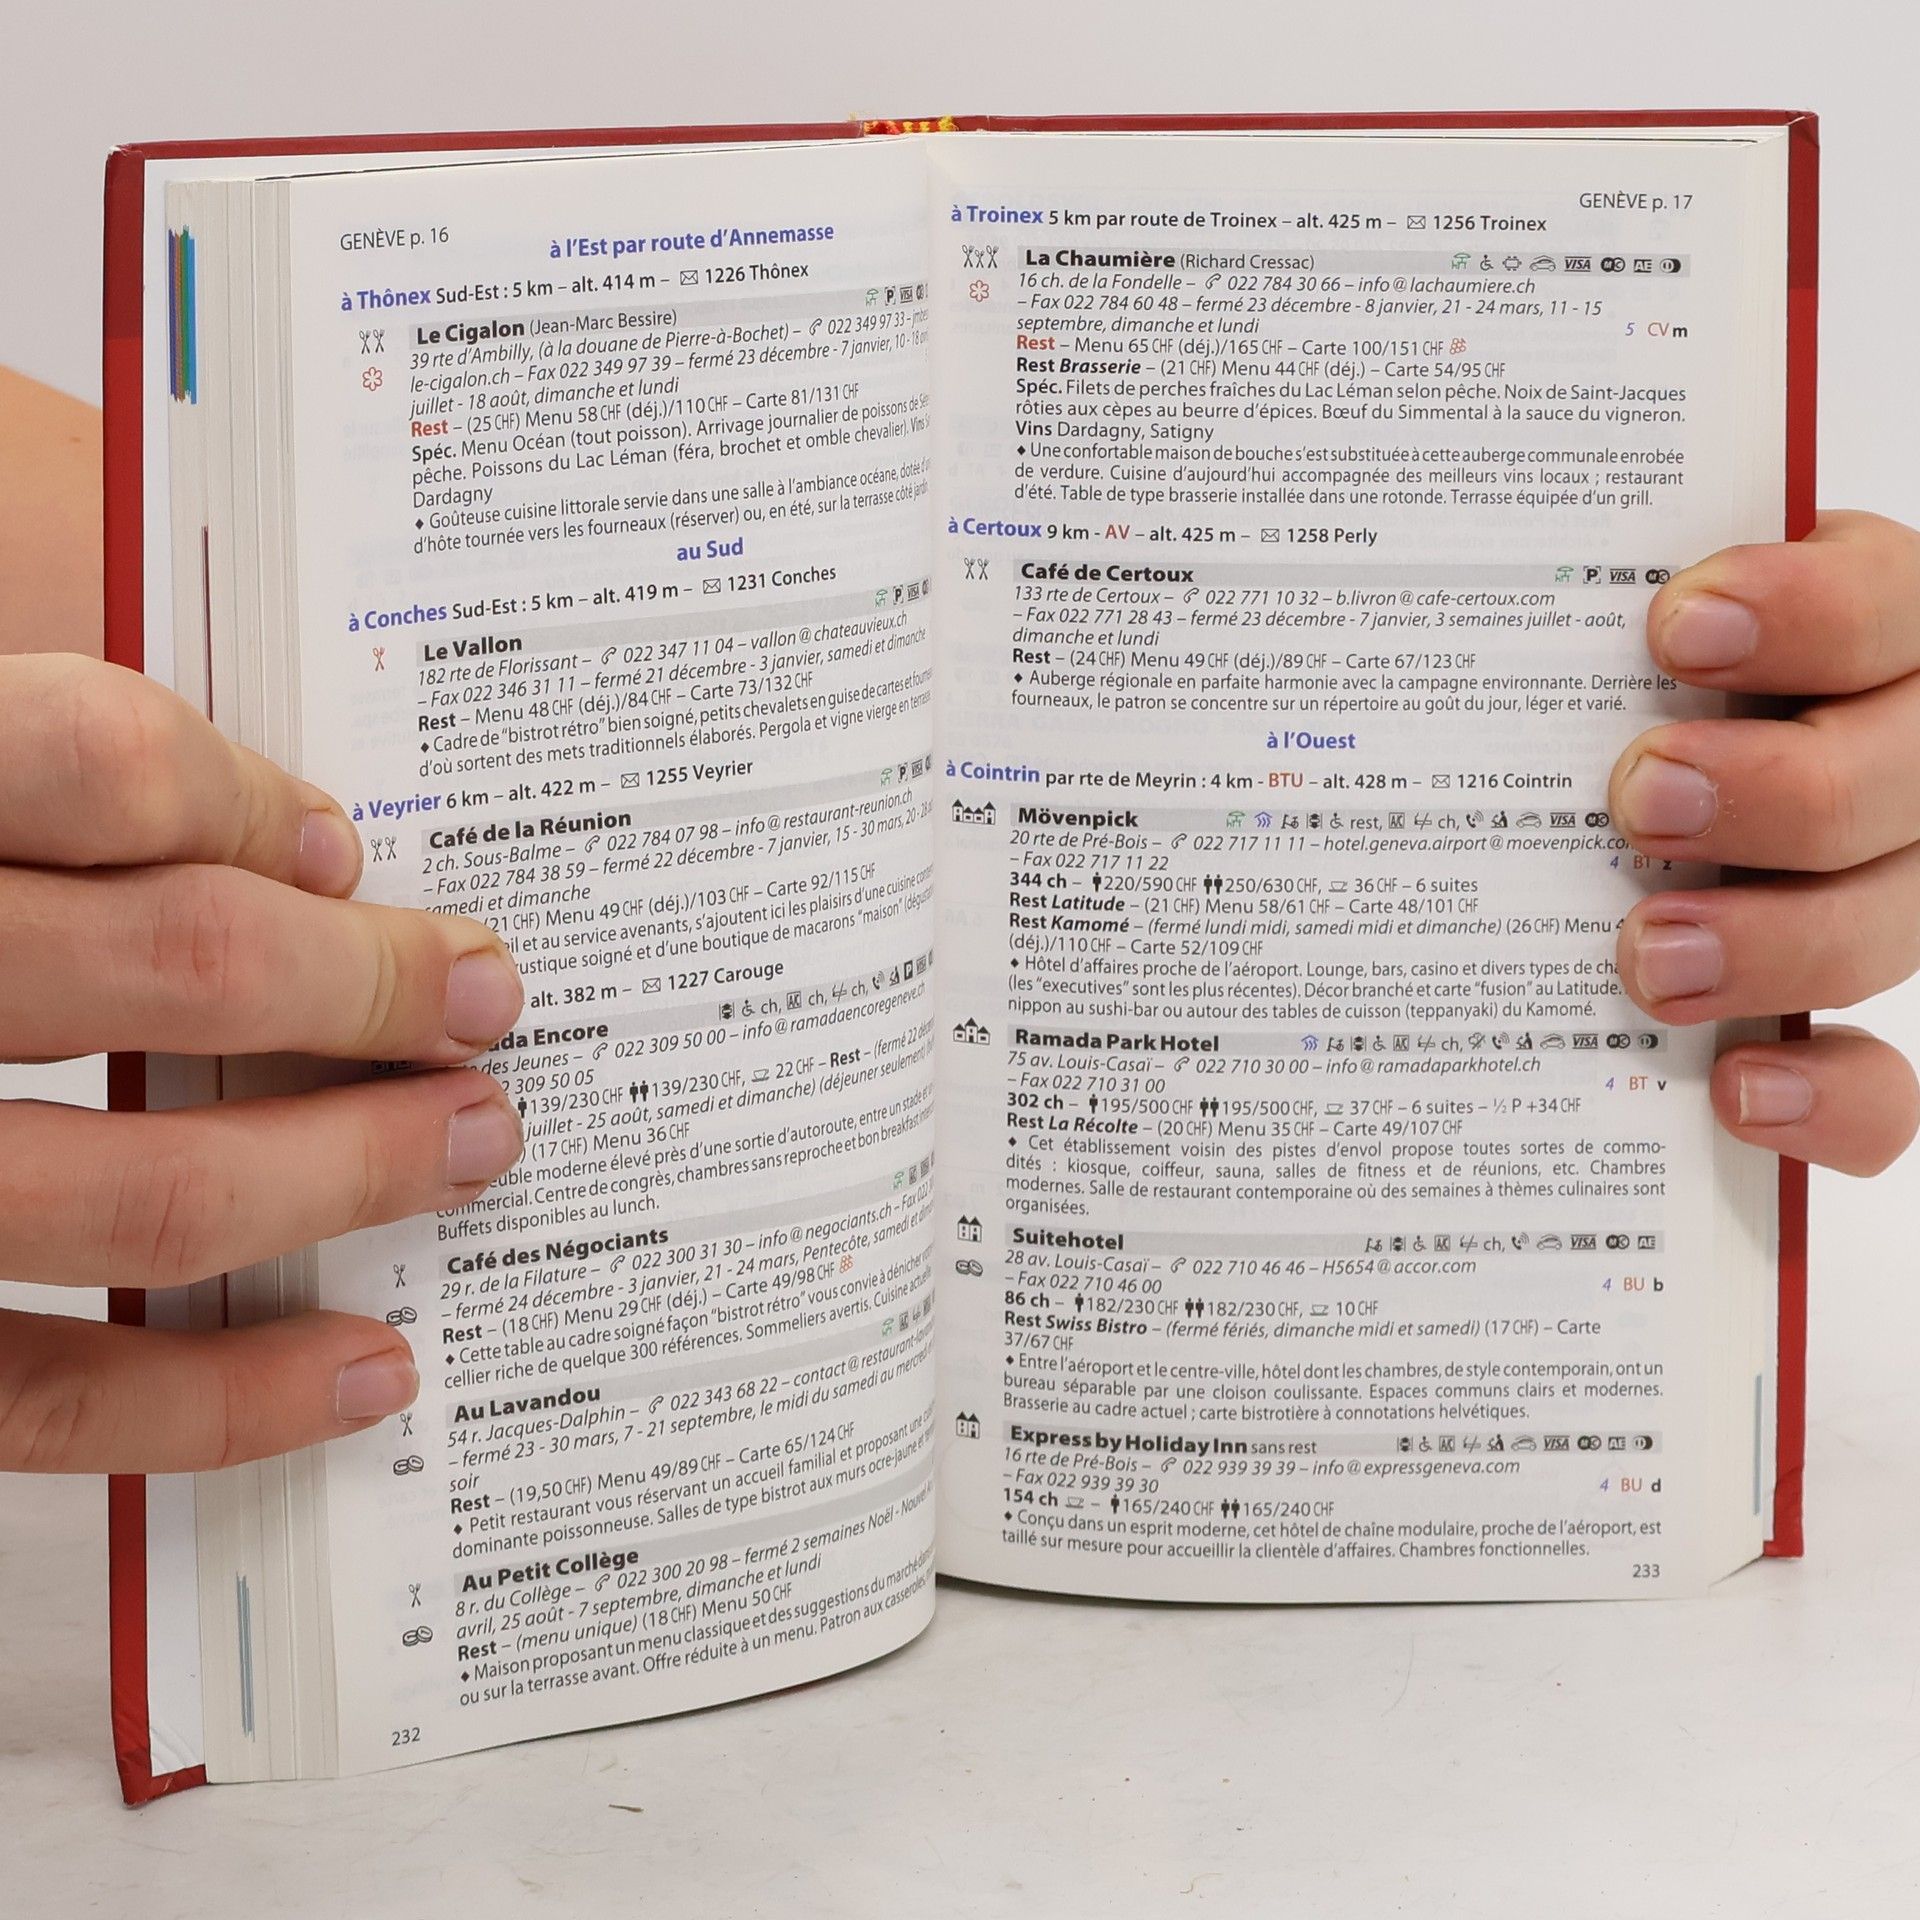 GENÈVE p. 16
à l'Est par route d'Annemasse
à Thônex Sud-Est : 5 km – alt. 414 m – 1226 Thônex
Le Cigalon (Jean-Marc Bessire)
39 rte d'Ambilly, (à la douane de Pierre-à-Bochet) – 022 349 97 33 –
le-cigalon.ch – Fax 022 349 97 39 – fermé 23 décembre - 7 janvier, 10 - 18
juillet - 18 août, dimanche et lundi
Rest – (25 CHF) Menu 58 CHF (déj.)/110 CHF – Carte 81/131 CHF
Spéc. Menu Océan (tout poisson). Arrivage journalier de poissons de
pêche. Poissons du Lac Léman (féra, brochet et omble chevalier). Vins
Dardagny
♦ Goûteuse cuisine littorale servie dans une salle à l'ambiance océane, dotée
d'hôte tournée vers les fourneaux (réserver) ou, en été, sur la terrasse côté jardin
au Sud
à Conches Sud-Est : 5 km – alt. 419 m – 1231 Conches
Le Vallon
182 rte de Florissant – 022 347 11 04 – vallon@chateauvieux.ch
– Fax 022 346 31 11 – fermé 21 décembre - 3 janvier, samedi et dimanche
Rest – Menu 48 CHF (déj.)/84 CHF – Carte 73/132 CHF
♦ Cadre de "bistrot rétro" bien soigné, petits chevalets en guise de cartes et
d'où sortent des mets traditionnels élaborés. Pergola et vigne vierge en
à Veyrier 6 km – alt. 422 m – 1255 Veyrier
Café de la Réunion
2 ch. Sous-Balme – 022 784 07 98 – info@restaurant-reunion.ch
– Fax 022 784 38 59 – fermé 22 décembre - 7 janvier, 15 - 30 mars, 20 - 28
samedi et dimanche
21 CHF) Menu 49 CHF (déj.)/103 CHF – Carte 92/115 CHF
et au service avenants, s'ajoutent ici les plaisirs d'une cuisine
soigné et d'une boutique de macarons "maison"
alt. 382 m – 1227 Carouge
Encore ch, AC ch, ch, P VISA
des Jeunes – 022 309 50 00 – info@ramadaencoregeneve.ch
309 50 05
139/230 CHF 139/230 CHF, 22 CHF – Rest – (fermé 22
juillet - 25 août, samedi et dimanche) (déjeuner seulement)
(17 CHF) Menu 36 CHF
moderne élevé près d'une sortie d'autoroute, entre un stade et
Centre de congrès, chambres sans reproche et bon breakfast
Buffets disponibles au lunch.
Café des Négociants
29 r. de la Filature – 022 300 31 30 – info@negociants.ch – Fax 022
– fermé 24 décembre - 3 janvier, 21 - 24 mars, Pentecôte, samedi et
Rest – (18 CHF) Menu 29 CHF (déj.) – Carte 49/98 CHF
♦ Cette table au cadre soigné façon "bistrot rétro" vous convie à dénicher
cellier riche de quelque 300 références. Sommeliers avertis. Cuisine actuelle
Au Lavandou
54 r. Jacques-Dalphin – 022 343 68 22 – contact@restaurant-
– fermé 23 - 30 mars, 7 - 21 septembre, le midi du samedi au mercredi
soir
Rest – (19,50 CHF) Menu 49/89 CHF – Carte 65/124 CHF
♦ Petit restaurant vous réservant un accueil familial et proposant une
dominante poissonneuse. Salles de type bistrot aux murs ocre-jaune et
Au Petit Collège
8 r. du Collège – 022 300 20 98 – fermé 2 semaines Noël -
avril, 25 août - 7 septembre, dimanche et lundi
Rest – (menu unique) (18 CHF) Menu 50 CHF
♦ Maison proposant un menu classique et des suggestions du marché
ou sur la terrasse avant. Offre réduite à un menu. Patron aux casseroles,
232
GENÈVE p. 17
à Troinex 5 km par route de Troinex – alt. 425 m – 1256 Troinex
La Chaumière (Richard Cressac) VISA MC AE
16 ch. de la Fondelle – 022 784 30 66 – info@lachaumiere.ch
– Fax 022 784 60 48 – fermé 23 décembre - 8 janvier, 21 - 24 mars, 11 - 15
septembre, dimanche et lundi 5 CV m
Rest – Menu 65 CHF (déj.)/165 CHF – Carte 100/151 CHF
Rest Brasserie – (21 CHF) Menu 44 CHF (déj.) – Carte 54/95 CHF
Spéc. Filets de perches fraîches du Lac Léman selon pêche. Noix de Saint-Jacques
rôties aux cèpes au beurre d'épices. Bœuf du Simmental à la sauce du vigneron.
Vins Dardagny, Satigny
♦ Une confortable maison de bouche s'est substituée à cette auberge communale enrobée
de verdure. Cuisine d'aujourd'hui accompagnée des meilleurs vins locaux ; restaurant
d'été. Table de type brasserie installée dans une rotonde. Terrasse équipée d'un grill.
à Certoux 9 km - AV – alt. 425 m – 1258 Perly
Café de Certoux P VISA MC
133 rte de Certoux – 022 771 10 32 – b.livron@cafe-certoux.com
– Fax 022 771 28 43 – fermé 23 décembre - 7 janvier, 3 semaines juillet - août,
dimanche et lundi
Rest – (24 CHF) Menu 49 CHF (déj.)/89 CHF – Carte 67/123 CHF
♦ Auberge régionale en parfaite harmonie avec la campagne environnante. Derrière les
fourneaux, le patron se concentre sur un répertoire au goût du jour, léger et varié.
à l'Ouest
à Cointrin par rte de Meyrin : 4 km - BTU – alt. 428 m – 1216 Cointrin
Mövenpick rest, AC ch, VISA MC
20 rte de Pré-Bois – 022 717 11 11 – hotel.geneva.airport@moevenpick.co
– Fax 022 717 11 22 4 BT z
344 ch – 220/590 CHF 250/630 CHF, 36 CHF – 6 suites
Rest Latitude – (21 CHF) Menu 58/61 CHF – Carte 48/101 CHF
Rest Kamomé – (fermé lundi midi, samedi midi et dimanche) (26 CHF) Menu
(déj.)/110 CHF – Carte 52/109 CHF
♦ Hôtel d'affaires proche de l'aéroport. Lounge, bars, casino et divers types de
(les "executives" sont les plus récentes). Décor branché et carte "fusion" au Latitude.
nippon au sushi-bar ou autour des tables de cuisson (teppanyaki) du Kamomé.
Ramada Park Hotel AC ch, VISA MC
75 av. Louis-Casaï – 022 710 30 00 – info@ramadaparkhotel.ch
– Fax 022 710 31 00 4 BT v
302 ch – 195/500 CHF 195/500 CHF, 37 CHF – 6 suites – ½ P +34 CHF
Rest La Récolte – (20 CHF) Menu 35 CHF – Carte 49/107 CHF
♦ Cet établissement voisin des pistes d'envol propose toutes sortes de commo-
dités : kiosque, coiffeur, sauna, salles de fitness et de réunions, etc. Chambres
modernes. Salle de restaurant contemporaine où des semaines à thèmes culinaires sont
organisées.
Suitehotel AC ch, VISA MC AE
28 av. Louis-Casaï – 022 710 46 46 – H5654@accor.com
– Fax 022 710 46 00 4 BU b
86 ch – 182/230 CHF 182/230 CHF, 10 CHF
Rest Swiss Bistro – (fermé fériés, dimanche midi et samedi) (17 CHF) – Carte
37/67 CHF
♦ Entre l'aéroport et le centre-ville, hôtel dont les chambres, de style contemporain, ont un
bureau séparable par une cloison coulissante. Espaces communs clairs et modernes.
Brasserie au cadre actuel ; carte bistrotière à connotations helvétiques.
Express by Holiday Inn sans rest AC VISA MC AE
16 rte de Pré-Bois – 022 939 39 39 – info@expressgeneva.com
– Fax 022 939 39 30 4 BU d
154 ch – 165/240 CHF 165/240 CHF
♦ Conçu dans un esprit moderne, cet hôtel de chaîne modulaire, proche de l'aéroport, est
taillé sur mesure pour accueillir la clientèle d'affaires. Chambres fonctionnelles.
233